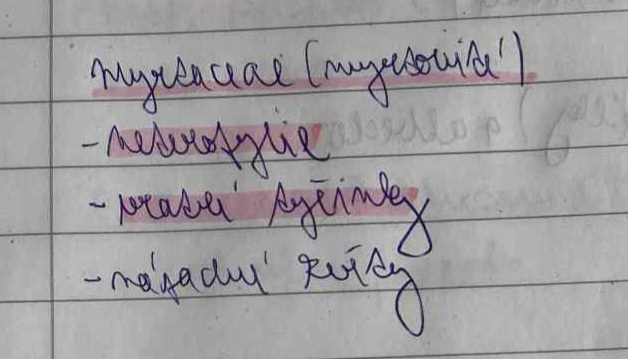 Myrtaceae (myrtovité)
- heterofylie
- tyčinky
- nápadné květy